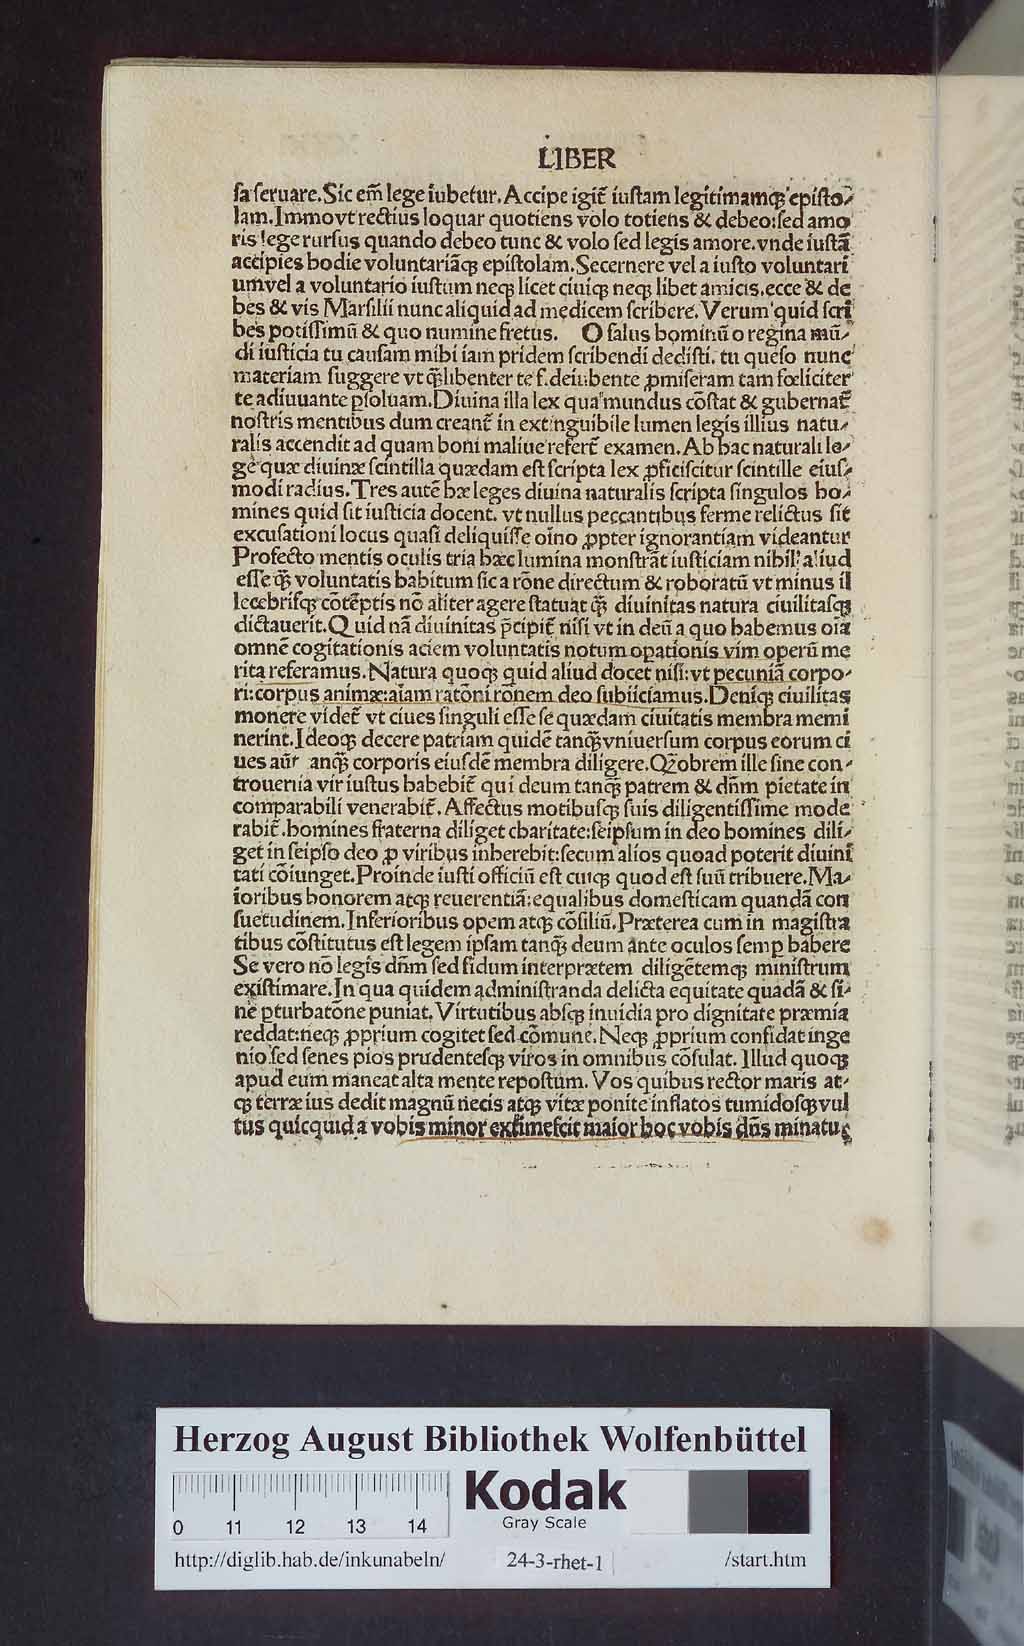 LIBER
sa seruare. Sic em̄ lege iubetur. Accipe igit̄ iustam legitimamqꝫ episto-
lam. Immo vt rectius loquar quotiens volo totiens & debeo: sed amo
ris lege rursus quando debeo tunc & volo sed legis amore. vnde iustā
accipies hodie voluntariāqꝫ epistolam. Secernere vel a iusto voluntari
um vel a voluntario iustum neqꝫ licet ciuiqꝫ neqꝫ libet amicis. ecce & de
bes & vis Marsilii nunc aliquid ad medicem scribere. Verum quid scri
bes potissimū & quo numine fretus. O salus hominū o regina mū-
di iusticia tu causam mihi iam pridem scribendi dedisti. tu queso nunc
materiam suggere vt qꝫ̄ libenter te f. deiubente ꝓmiseram tam fœliciter
te adiuuante ꝑsoluam. Diuina illa lex qua mundus cōstat & gubernat̄
nostris mentibus dum creant̄ in extinguibile lumen legis illius natu-
ralis accendit ad quam boni maliue refert̄ examen. Ab hac naturali le-
ge quæ diuinæ scintilla quædam est scripta lex ꝓficiscitur scintille eius-
modi radius. Tres autē hæ leges diuina naturalis scripta singulos ho-
mines quid sit iusticia docent. vt nullus peccantibus ferme relictus sit
excusationi locus quasi deliquisse oīno ꝓpter ignorantiam videantur
Profecto mentis oculis tria hæc lumina monstrāt iusticiam nihil aliud
esse qꝫ̄ voluntatis habitum sic a rōne directum & roboratū vt minus il
lecebrisqꝫ cōtēptis nō aliter agere statuat qꝫ̄ diuinitas natura ciuilitasqꝫ
dictauerit. Quid nā diuinitas p̄cipit̄ nisi vt in deū a quo habemus oīa
omnē cogitationis aciem voluntatis notum oꝑationis vim operū me
rita referamus. Natura quoqꝫ quid aliud docet nisi: vt pecuniā corpo-
ri: corpus animæ: aīam ratōni rōnem deo subiiciamus. Deniqꝫ ciuilitas
monere videt̄ vt ciues singuli esse se quædam ciuitatis membra memi
nerint. Ideoqꝫ decere patriam quidē tanqꝫ̄ vniuersum corpus eorum ci
ues aūt anqꝫ̄ corporis eiusdē membra diligere. Qꝫobrem ille sine con-
trouersia vir iustus habebit̄ qui deum tanqꝫ̄ patrem & dn̄m pietate in
comparabili venerabit̄. Affectus motibusqꝫ suis diligentissime mode
rabit̄. homines fraterna diliget charitate: seipsum in deo homines dili-
get in seipso deo ꝓ viribus inherebit: secum alios quoad poterit diuini
tati cōiunget. Proinde iusti officiū est cuiqꝫ quod est suū tribuere. Ma-
ioribus honorem atqꝫ reuerentiā: equalibus domesticam quandā con
suetudinem. Inferioribus opem atqꝫ cōsiliū. Præterea cum in magistra
tibus cōstitutus est legem ipsam tanqꝫ̄ deum ante oculos semꝑ habere
Se vero nō legis dn̄m sed fidum interprætem diligētemqꝫ ministrum
existimare. In qua quidem administranda delicta equitate quadā & si-
ne ꝑturbatōne puniat. Virtutibus absqꝫ inuidia pro dignitate præmia
reddat: neqꝫ ꝓprium cogitet sed cōmune. Neqꝫ ꝓprium confidat inge
nio sed senes pios prudentesqꝫ viros in omnibus cōsulat. Illud quoqꝫ
apud eum maneat alta mente repostum. Vos quibus rector maris at-
qꝫ terræ ius dedit magnū necis atqꝫ vitæ ponite inflatos tumidosqꝫ vul
tus quicquid a vobis minor extimescit maior hoc vobis dn̄s minatur
Herzog August Bibliothek Wolfenbüttel
Kodak
Gray Scale
0 11 12 13 14
http://diglib.hab.de/inkunabeln/ 24-3-rhet-1 /start.htm